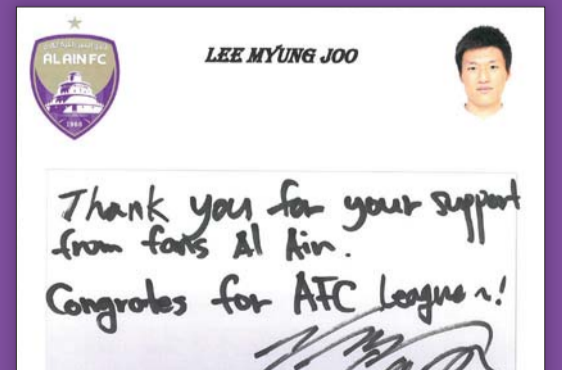 AL AIN FC
1968
LEE MYUNG JOO
Thank you for your support
from fans Al Ain.
Congrates for AFC League~!